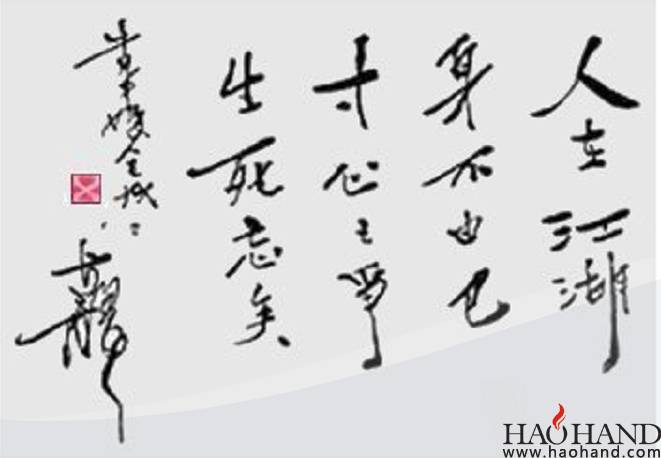 人在江湖
身不由己
寸心之爭
生死忘矣
古龍
HAOHAND
www.haohand.com